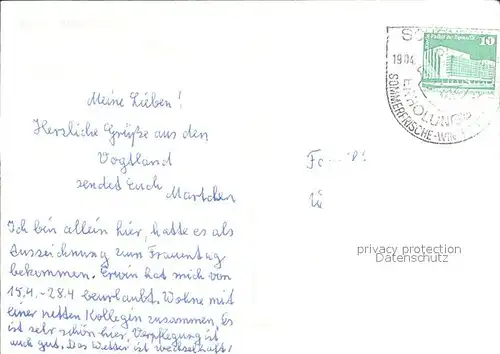 Meine Lieben!
Herzliche Grüße aus dem
Vogtland
sendet Euch
Martchen
Ich bin allein hier, hatte es als
Auszeichnung zum Frauentag
bekommen. Erwin hat mich von
15.4.-28.4 beurlaubt. Wohne mit
einer netten Kollegin zusammen. Es
ist sehr schön hier. Verpflegung ist
auch gut. Das Wetter ist wechselhaft!
10
19.04.
ERHOLUNGS
SOMMERFRISCHE-WIN
Fa
privacy protection
Datenschutz